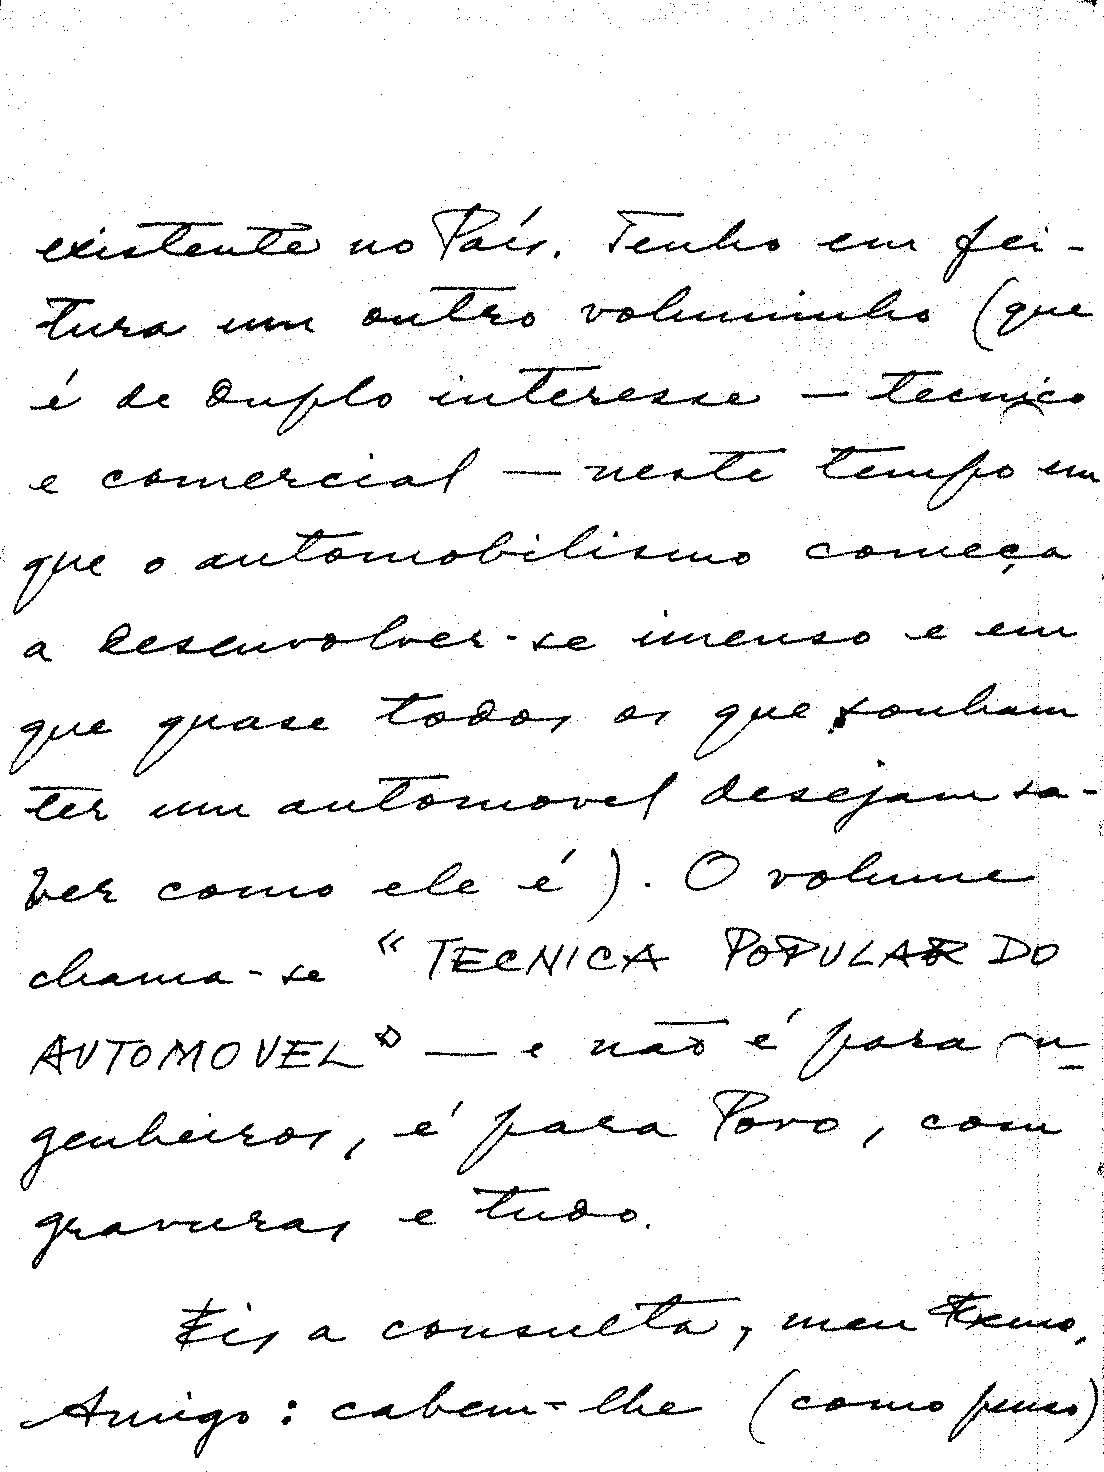 existente no País. Tenho em fei-
tura um outro voluminho (que
é de duplo interesse — tecnico
e comercial — neste tempo em
que o automobilismo começa
a desenvolver-se imenso e em
que quase todos os que sonham
ter um automovel desejam sa-
ber como ele é). O volume
chama-se "TECNICA POPULAR DO
AUTOMOVEL" — e não é para en
genheiros, é para Povo, com
gravuras e tudo.
Eis a consulta, meu Exmo.
Amigo: cabem-lhe (como penso)